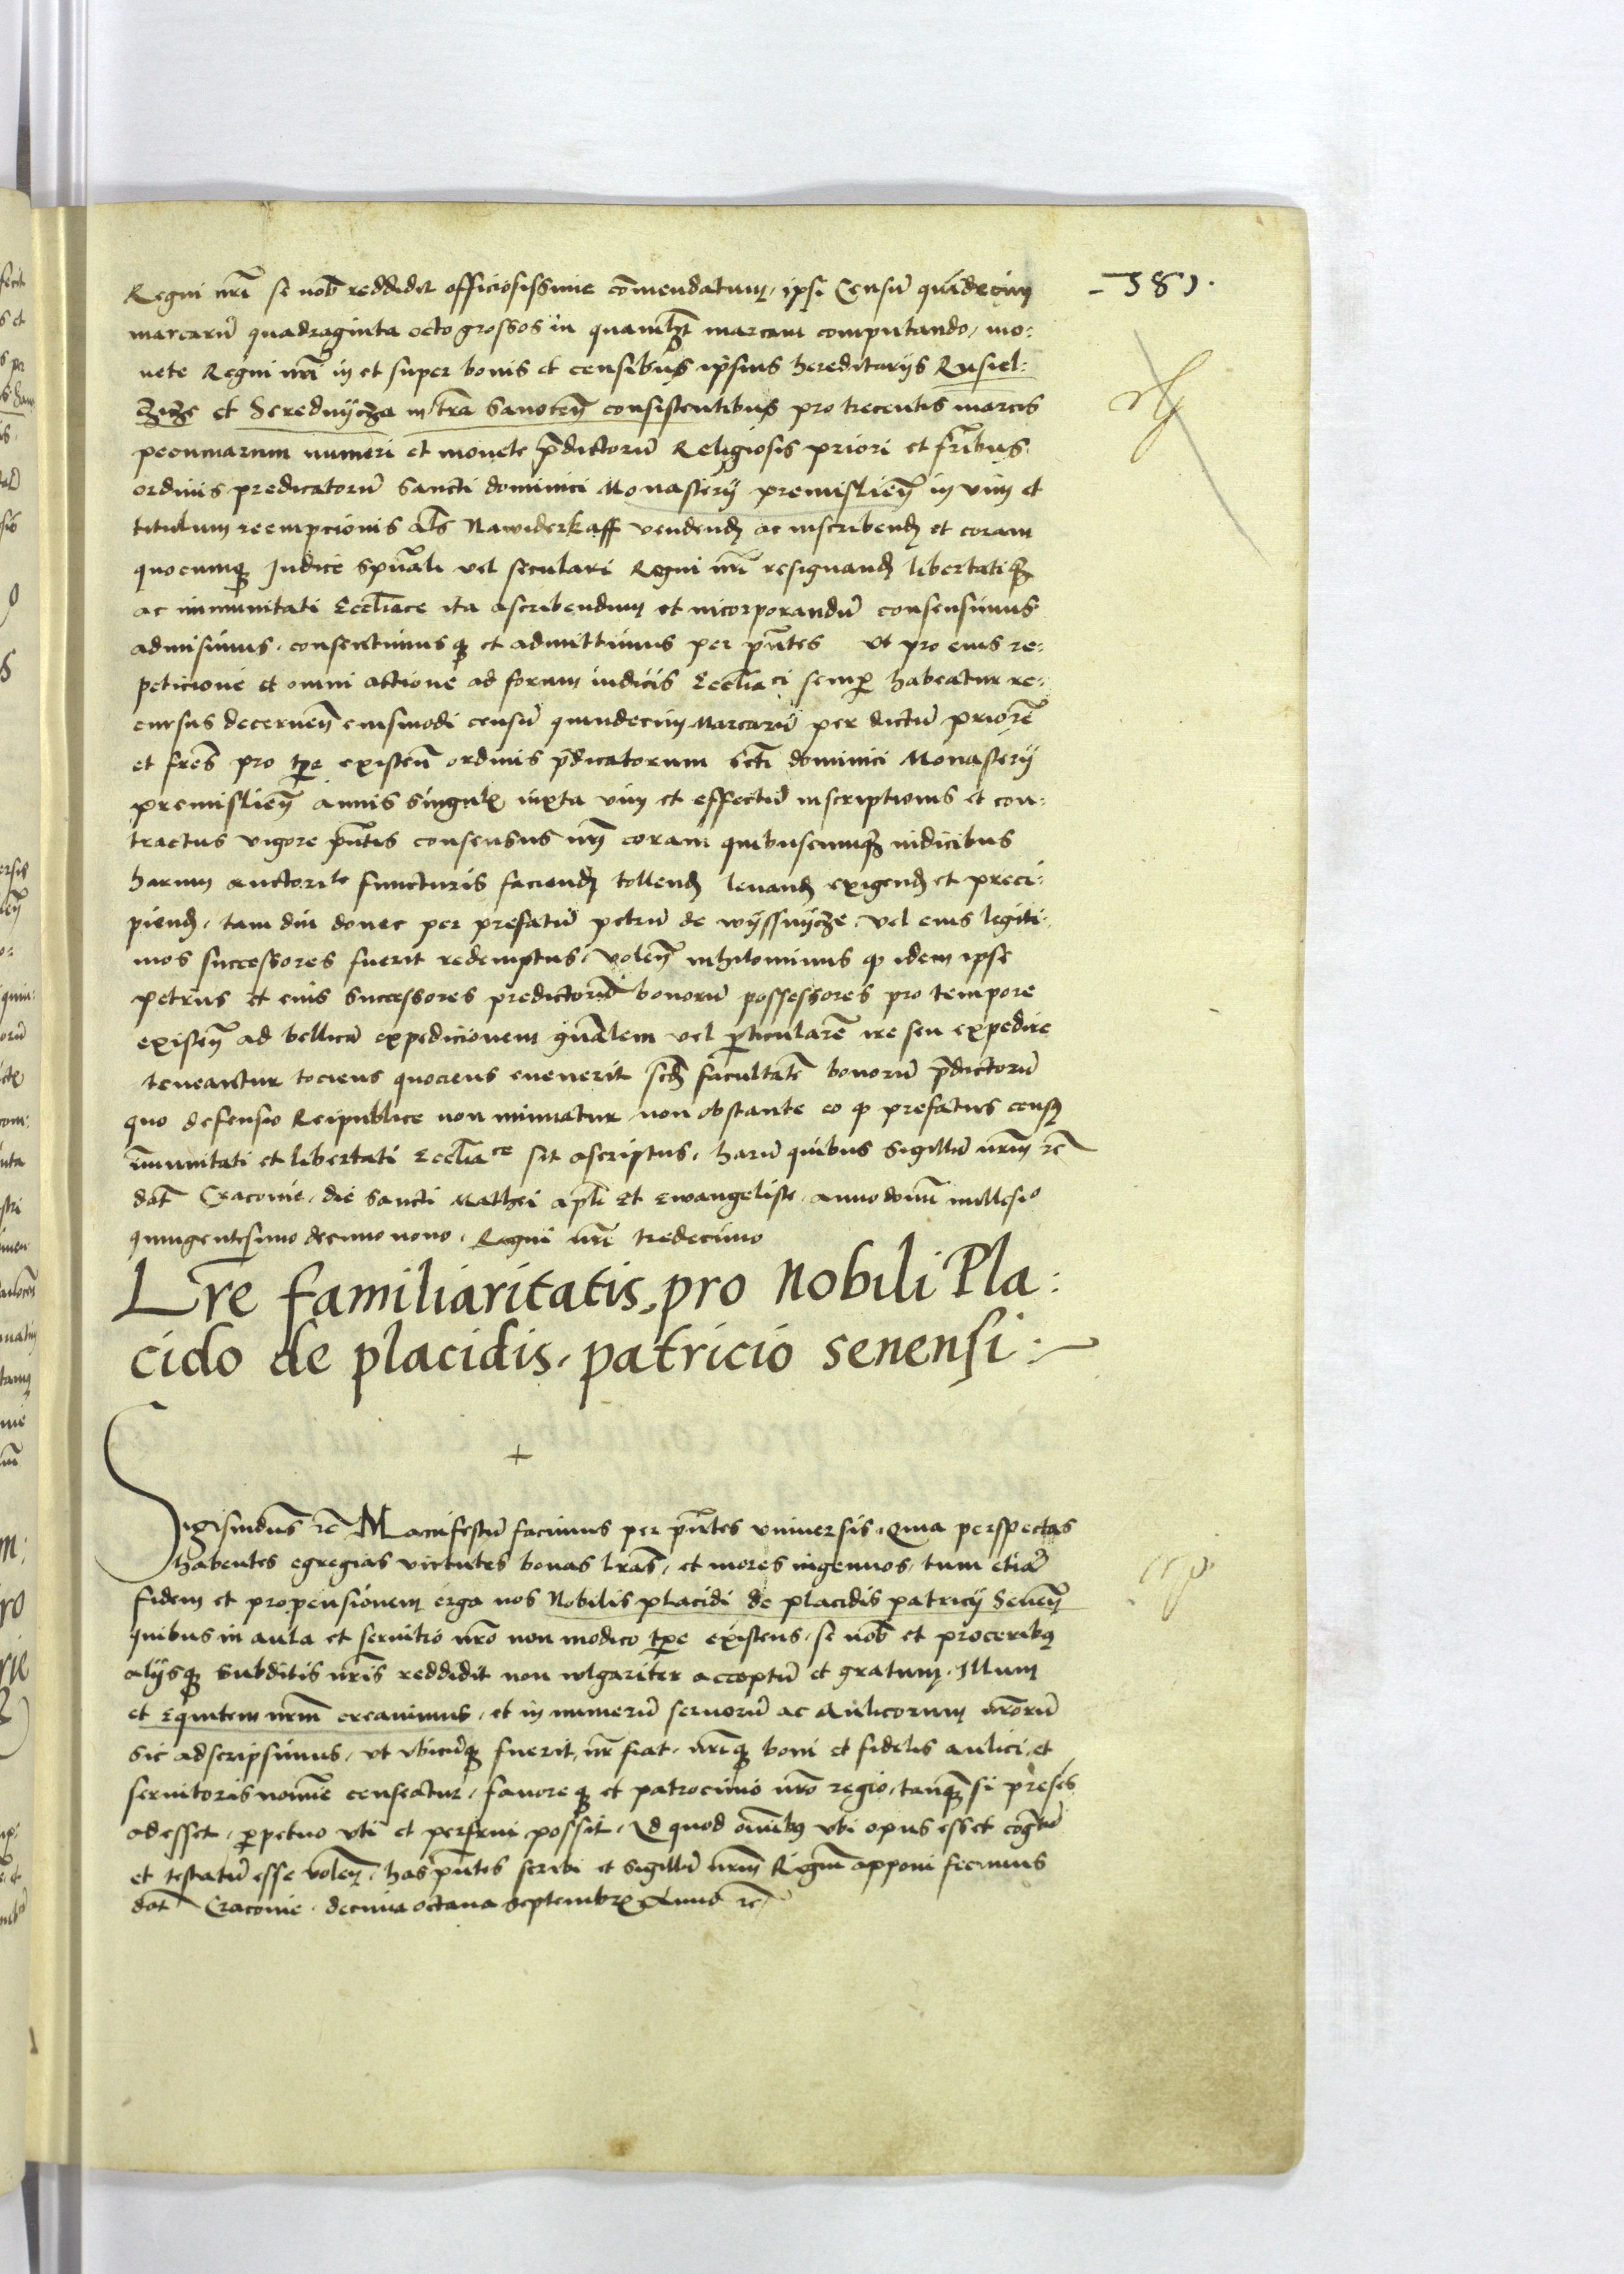 - 381.
Regni nrī se nob reddidit officiosissime cōmendatum, ipsi Censū quīdecim
marcarū quadraginta octo grossos in quamlꝫt marcam computando, mo:
nete Regni nrī in et super bonis et censibus ipsius hereditarijs Rusiel:
et Serednijcza in tra Sanoceñ consistentibus pro trecentis marcis
pecuniarum numeri et monete p̄dictorū Religiosis priori et frībus
ordinis predicatorū Sancti dominici Monasterij premislieñ in vim et
titulum reempcionis als Nawiderkaff vendendꝫ ac inscribendꝫ et coram
quocumqꝫ Judice spūali vel seculari Regni nrī resignandꝫ libertatiqꝫ
ac immunitati Eccliace ita ascribendum et incorporandū consensimus
admisimus, consentimusqꝫ et admittimus per pn̄tes vt pro eius re:
peticione et omni actione ad forum iudicis Eccliaci semꝑ habeatur re:
cursus decerneñ eiusmodi censū quindecim Marcarū per dictū priorē
et fres pro tpe existeñ ordinis p̄dicatorum scti dominici Monasterij
premislieñ annis singulꝭ iuxta vim et effectū inscriptionis et con:
tractus vigore pn̄tis consensus nrī coram quibuscumqꝫ iudicibus
harum auctorite functuris faciendꝫ tollendꝫ levandꝫ exigendꝫ et preci:
piendꝫ, tam diu donec per prefatū petrū de wijssnijcze, vel eius legiti:
mos successores fuerit redemptus, voleñ nihilominus ꝙ idem ipse
petrus et eius successores predictorū bonorū possessores pro tempore
existeñ ad bellicā expedicionem gn̄alem vel ꝑticularē ire seu expedire
teneantur tociens quociens evenerit scdꝫ facultatē bonorū p̄dictorū
quo defensio Reipublice non minuatur non obstante eo ꝙ prefatus censꝰ
īmunitati et libertati Eccliace sit ascriptus, harū quibus sigillū nrm̄ rc̄
dat Cracovie, die Sancti Mathei apli Et Ewangeliste, anno domī millesio
quingentesimo decimo nono, Regni nrī tredecimo
Lre familiaritatis, pro Nobili Pla:
cido de placidis, patricio senensi:
Sigismdus rc̄ Manifestū facimus per pn̄tes vniversis, Quia perspectas
habentes egregias virtutes bonas lras, et mores ingenuos, tum etiā
fidem et propensionem erga nos Nobilis placidi de placidis patricij Seneñ
quibus in aula et servitio nr̄o non modico tpe existens, se nob et proceribꝰ
alijsqꝫ subditis nr̄is reddidit non vulgariter acceptū et gratum, Illum
et Equitem nrm̄ creavimus, et in numerū servorū ac Aulicorum nr̄orū
sic adscripsimus, vt vbicūqꝫ fuerit, nr̄ fiat, nrīqꝫ boni et fidelis aulici et
servitoris nomīe censeatur, favoreqꝫ et patrocinio nr̄o regio, tanqꝫ si preses
adesset, ꝑpetuo vti et perfrui possit, Id quod omībꝰ vbi opus esset
et testatū esse voleñ, has pn̄tes scribi et sigillū nrm̄ Regiū apponi fecimus
dat Cracovie, decima octava Septembrꝭ Anno rc̄